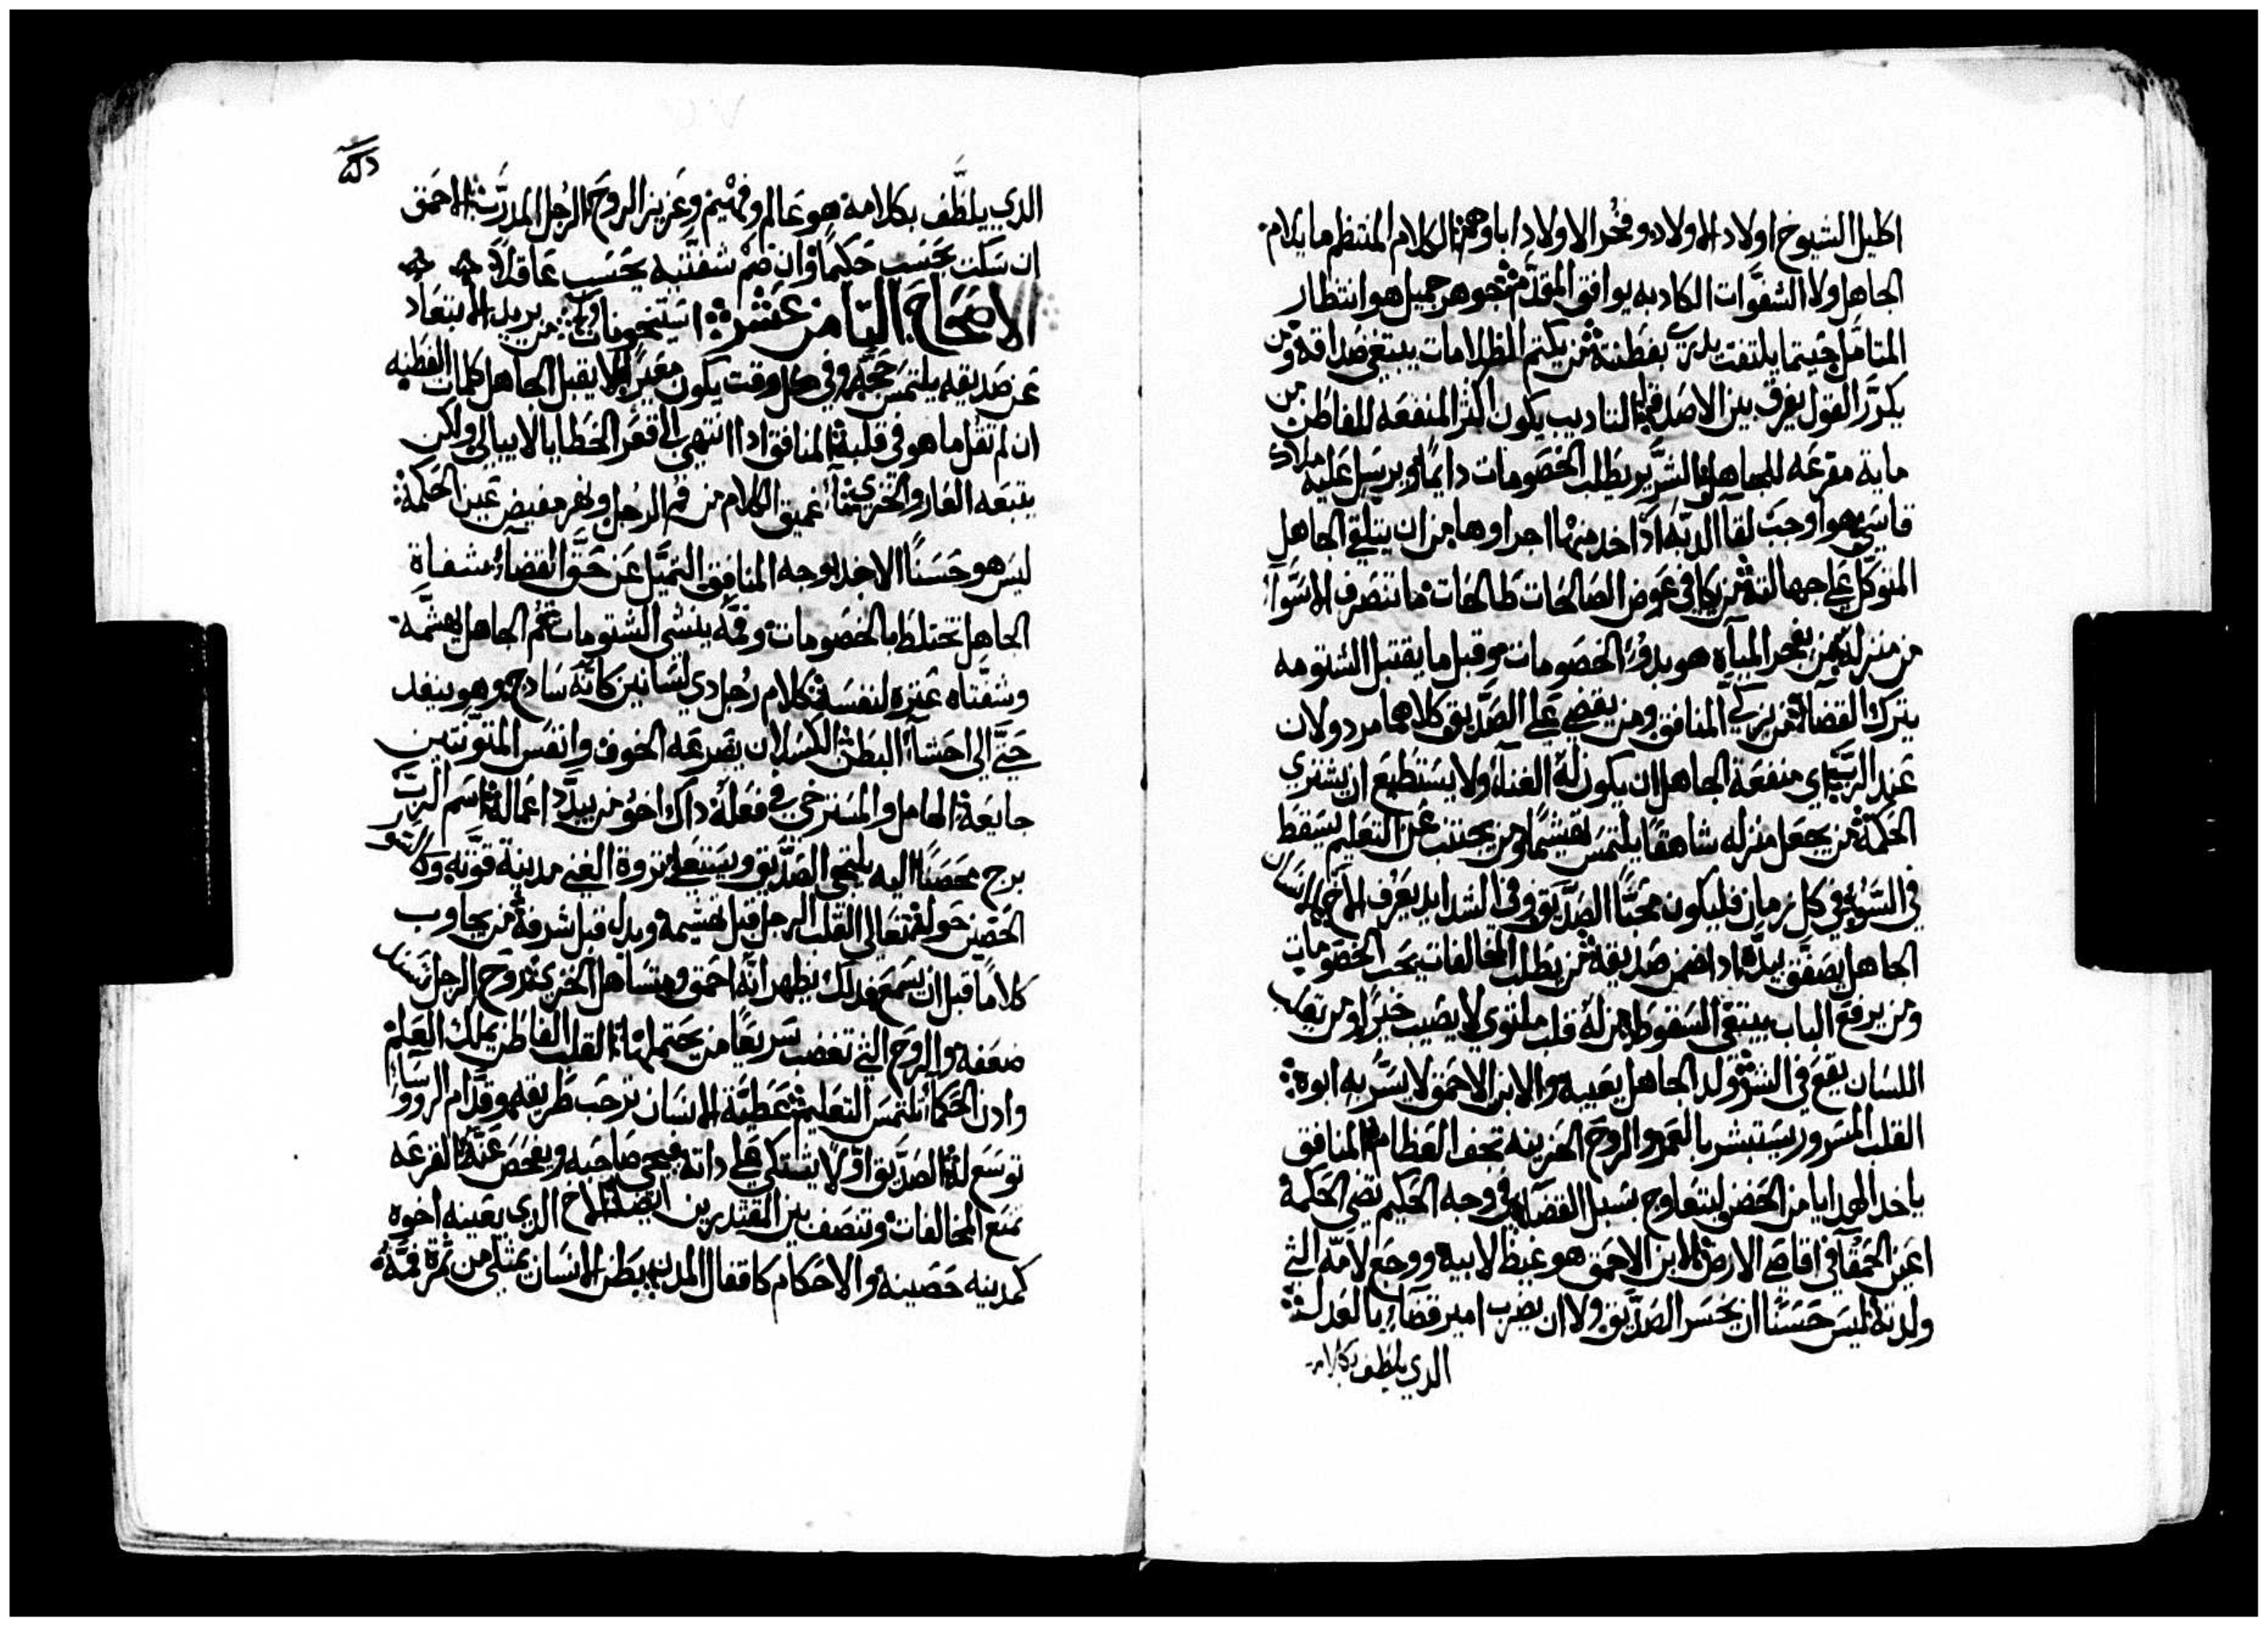 اكليل الشيوخ اولاد الاولاد وفخر الاولاد اباوهم الكلام المنتظم ما يلام
الجاهل ولا الشفوات الكادبه يوافق المقدم جوهر جميل هو انتظار
المتامل حيتما يلتفت يدري بفطنته من يكتم الظلامات يبتغي صداقه ومن
يكرر القول يفرق بين الاصدقا التاديب يكون اكثر المنفعه للفاطن من
ماية مقرعه للجاهل الشرير يطلب الخصومات دايمًا ويرسل عليه ملاك
قاسي هو اوجب لقا الدبه اذا اخد منها اجراوها من ان يتلقي الجاهل
المتوكل علي جهالته من يكافي عوض الصالحات طالحات ما تنصرف الاسوآ
من منزله من يفجر المياه هو بدو الخصومات وقبل ما يقتبل الشتومه
يترك القضآ من يزكي المنافق ومن يقضي علي الصديق كلاهما مردولان
عند الرب اي منفعة الجاهل ان يكون له الغناء ولا يستطيع ان يشتري
الحكمة من يجعل منزله شاهقًا يلتمس تهشيمًا ومن يجتنب عن التعليم يسقط
في السوء في كل زمان فليكون محبًا الصديق وفي الشدايد يعرف الاخ الانسان
الجاهل يصفق بيده اذا ضمن صديقه من يطلب المخالفات يحب الخصومات
ومن يرفع الباب يبتغي السقوط من له قلب ملتوي لا يصيب خيرًا ومن يقلب
اللسان يقع في الشر ولد الجاهل يعيبه والابن الاحمق لا يسر به ابوه
القلب المسرور يستبشر بالعمر والروح الحزينه تجفف العظام المنافق
ياخد الهدايا من الحضن ليتعاوج بسبل القضاء في وجه الحكيم تضي الحكمة و
اعين الحمقآ في اقاصي الارض الابن الاحمق هو غيظ لابيه ووجع لامه التي
ولدته ليس حسنًا ان يخسر الصديق ولا ان يضرب امير قضاء بالعدل
الدي يلطف بكلامه
الدي يلطف بكلامه هو عالم وفهيم وعزيز الروح الرجل المدرب الاحمق
ان سكت يحسب حكيمًا وان ضم شفتيه يحسب عاقلًا
الاصحاح التامن عشر من يريد الابتعاد
عن صديقه يلتمس حجه وفي كل وقت يكون معيرًا لا يقبل الجاهل كلمات الفطنه
ان لم تقل ما هو في قلبه المنافق اذا انتهي الي قعر الخطايا لا يبالي ولكن
يتبعه العار والخزي مآ عميق الكلام من فم الرجل ونهر مفيض عين الحكمه
ليس هو حسنًا الاخد بوجه المنافق التميل عن حق القضآ شفاة
الجاهل تختلط بالخصومات وفمه ينشي الشتومات فم الجاهل يهشمه
وشفتاه عثره لنفسه كلام رجل دي لسانين كانه سادج وهو ينفد
حتي الي احشآ البطن الكسلان يصرعه الخوف وانفس المتونتين
جايعة الهامل والمسترخي في فعله داك اخو من يبدد اعماله اسم الرب
برج محصنًا اليه يلتجي الصديق ويستعلي تروة الغني مدينة قوته وكالسور
الحصين حوله يتعالي القلب الرجل قبل تهشيمه ويدل قبل شرفه من يجاوب
كلامًا قبل ان يسمع فداك يظهر انه احمق ومتساهل الخزي روح الرجل تسند
ضعفه والروح التي تغضب سريعًا من يحتملها القلب الفاطن يملك العلم
وادن الحكمآ تلتمس التعليم عطية الانسان ترحب طريقه وقدام الرووسا
توسع له الصديق اولًا يشتكي علي داته فيجي صاحبه ويفحص عنه القرعه
تمنع المخالفات وتنصف بين المقتدرين ايضا الاخ الدي يعينه اخوه
كمدينه حصينه والاحكام كاقفال المدن بطن الانسان يمتلي من تمرة فمه